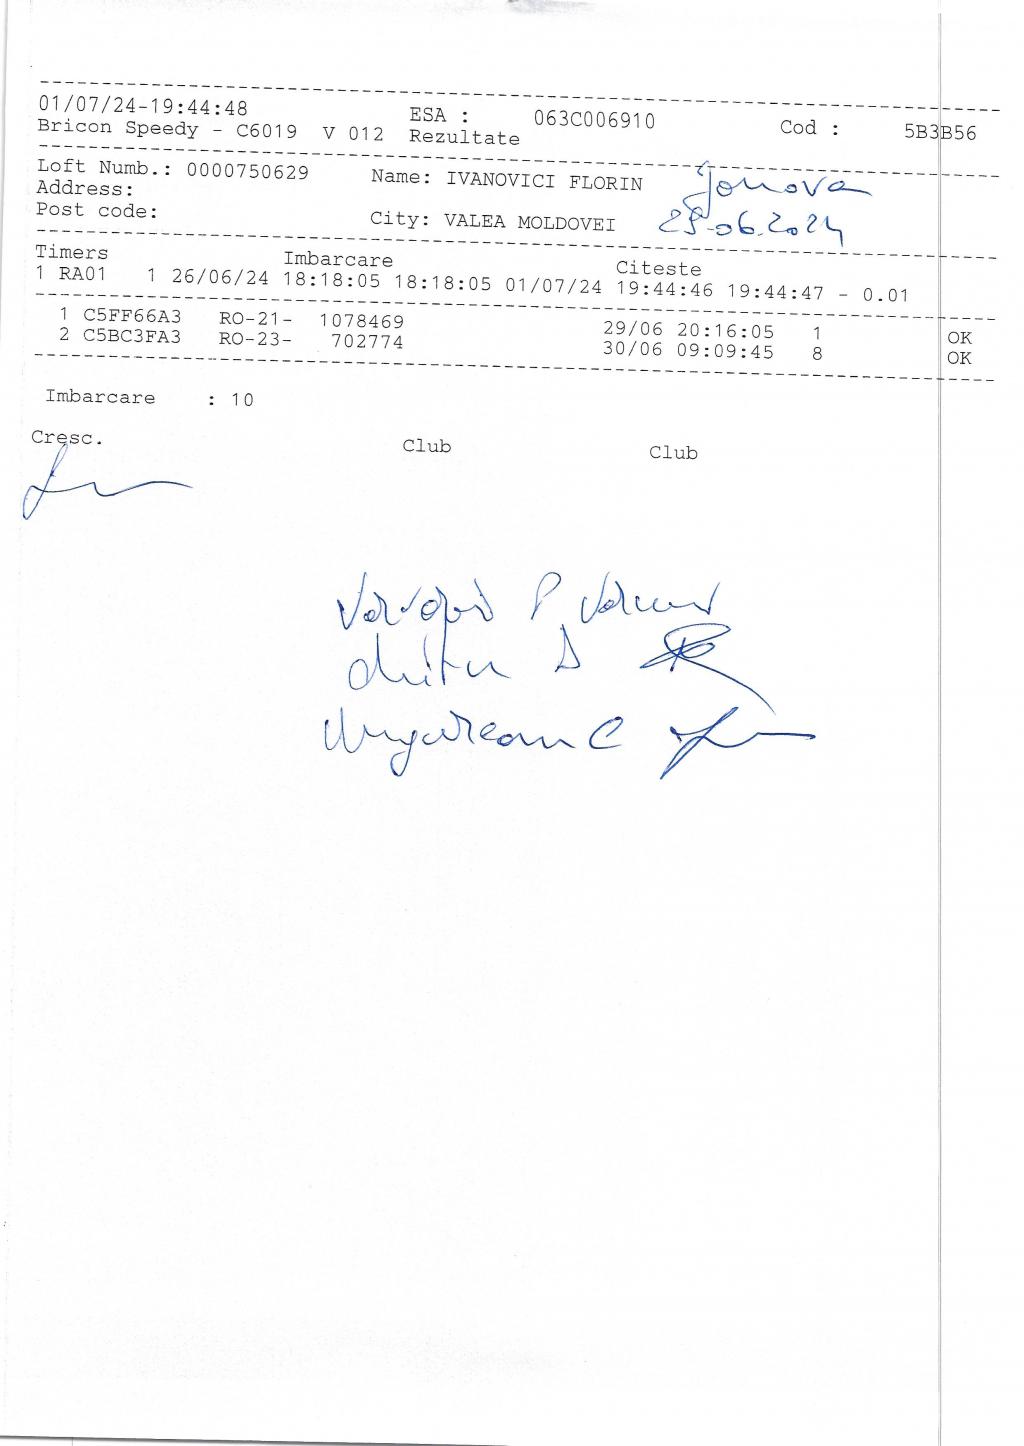 01/07/24-19:44:48 ESA : 063C006910 Cod : 5B3B56
Bricon Speedy - C6019 V 012 Rezultate
Loft Numb.: 0000750629 Name: IVANOVICI FLORIN Jonova
Address:
Post code: City: VALEA MOLDOVEI 29.06.2024
Timers Imbarcare Citeste
1 RA01 1 26/06/24 18:18:05 18:18:05 01/07/24 19:44:46 19:44:47 - 0.01
1 C5FF66A3 RO-21- 1078469 29/06 20:16:05 1 OK
2 C5BC3FA3 RO-23- 702774 30/06 09:09:45 8 OK
Imbarcare : 10
Cresc. Club Club
P
D
Ungurean C